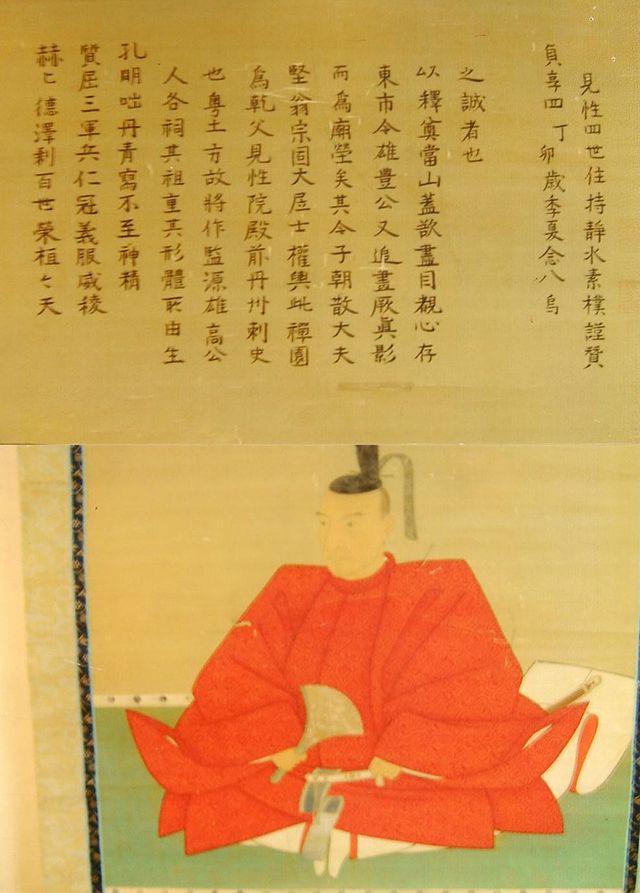 赫々德澤利百世榮桓々天
質屈三軍兵仁冠義服威稜
孔明咄丹青寫不至神精
人各祠其祖重其形體所由生
也粤土方故將作監源雄高公
爲乾父見性院殿前丹州刺史
堅翁宗固大居士權輿此禪園
而爲廟塋矣其令子朝散大夫
東市令雄豊公又追畫厥眞影
以釋寘當山蓋欲盡目覩心存
之誠者也
貞享四丁卯歳季夏念八烏
見性四世住持靜水素樸謹贊